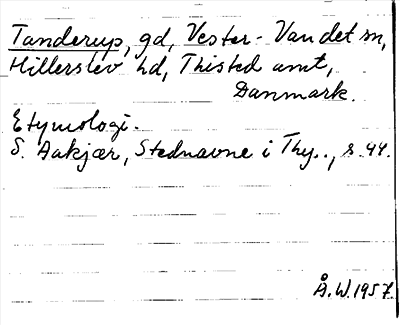 Tanderup, gd, Vester-Vandet sn,
Hillerslev hd, Thisted amt,
Danmark.
Etymologi.
S. Aakjær, Stednavne i Thy.., s. 44.
Å.W. 1957.